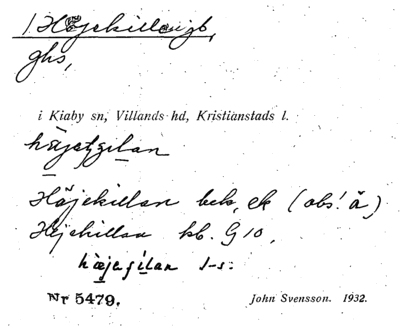 1. Höjekillan, gb,
ghs,
i Kiaby sn, Villands hd, Kristianstads l.
Häjekillan bek, ek (obs! ä)
Hejekillan kb. G 10,
Nr 5479. John Svensson. 1932.